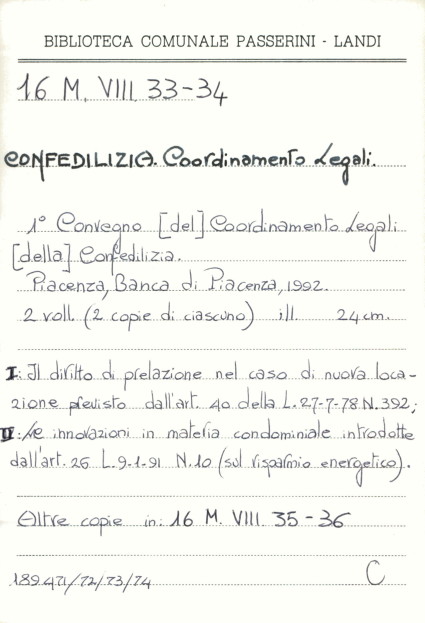 BIBLIOTECA COMUNALE PASSERINI - LANDI
16 M. VIII. 33-34
CONFEDILIZIA. Coordinamento Legali.
1° Convegno [del] Coordinamento Legali
[della] Confedilizia.
Piacenza, Banca di Piacenza, 1992.
2 voll. (2 copie di ciascuno) ill. 24 cm.
I: Il diritto di prelazione nel caso di nuova loca-
zione previsto dall'art. 40 della L. 27-7-78 N. 392;
II: Le innovazioni in materia condominiale introdotte
dall'art. 26 L. 9-1-91 N. 10 (sul risparmio energetico).
Altre copie in: 16 M. VIII. 35-36
189.471/72/73/74 C